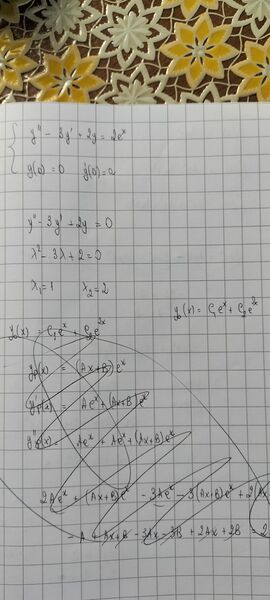 y'' - 3y' + 2y = 2e^x
y(0) = 0 y'(0) = a
y'' - 3y' + 2y = 0
λ² - 3λ + 2 = 0
λ₁ = 1 λ₂ = 2
y₀(x) = C₁e^x + C₂e^2x
y₀(x) = C₁e^x + C₂e^2x
(x) = (Ax+B)e^x
y'(x) = Ae^x + (Ax+B)e^x
y''(x) = Ae^x + Ae^x + (Ax+B)e^x
2Ae^x + (Ax+B)e^x - 3Ae^x - 3(Ax+B)e^x + 2(Ax
- A + Ax+B - 3Ax - 3B + 2Ax + 2B = 2